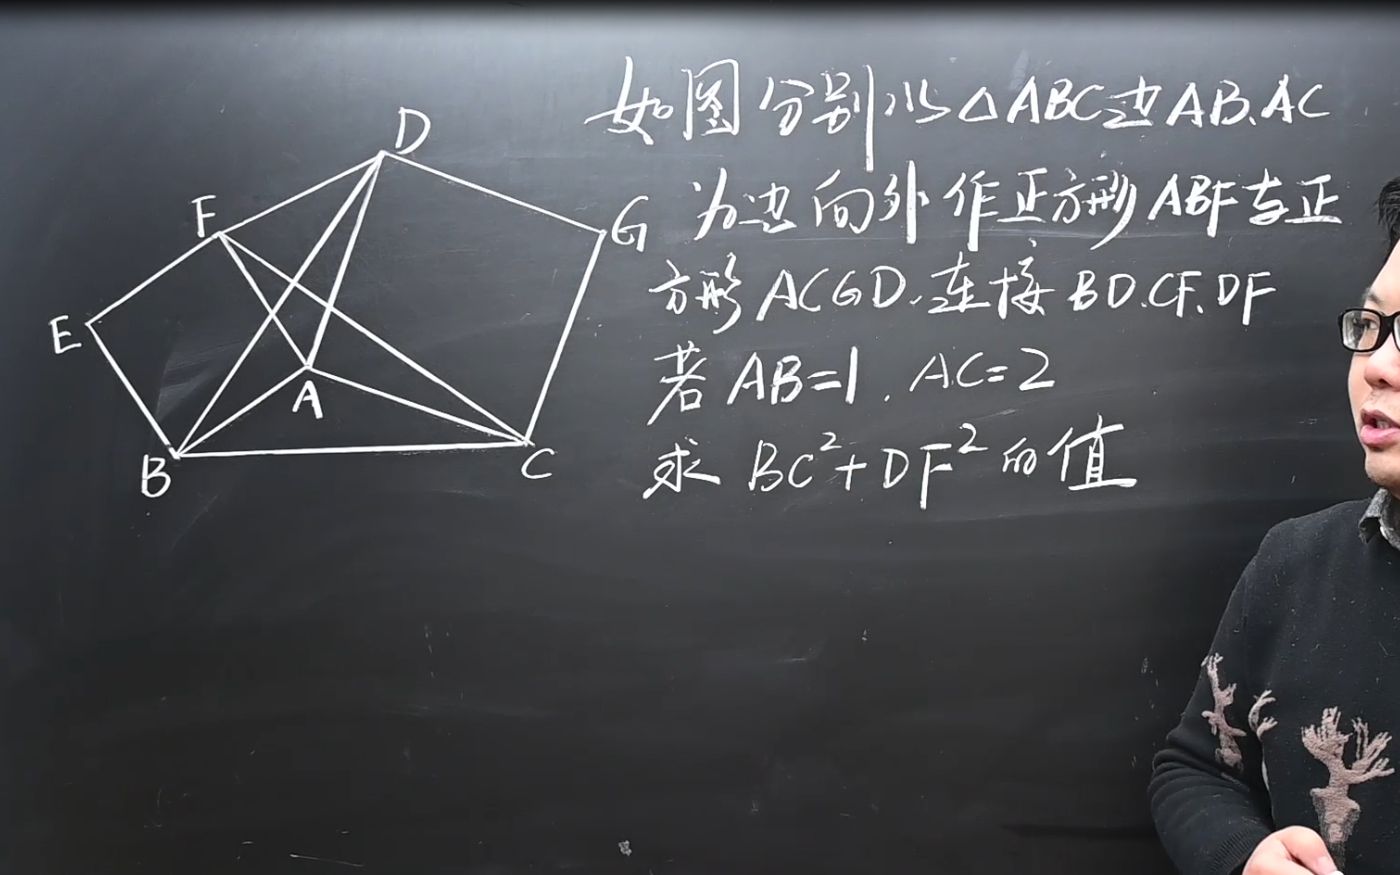 如图分别以△ABC边AB、AC
为边向外作正方形ABF与正
方形ACGD.连接BD.CF.DF
若AB=1.AC=2
求BC²+DF²的值
D
F
G
E
A
B
C